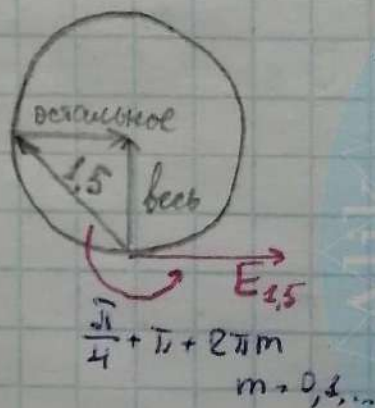 остальное
1,5
весь
E₁,₅
π/4 + π + 2πm
m = 0,1,...